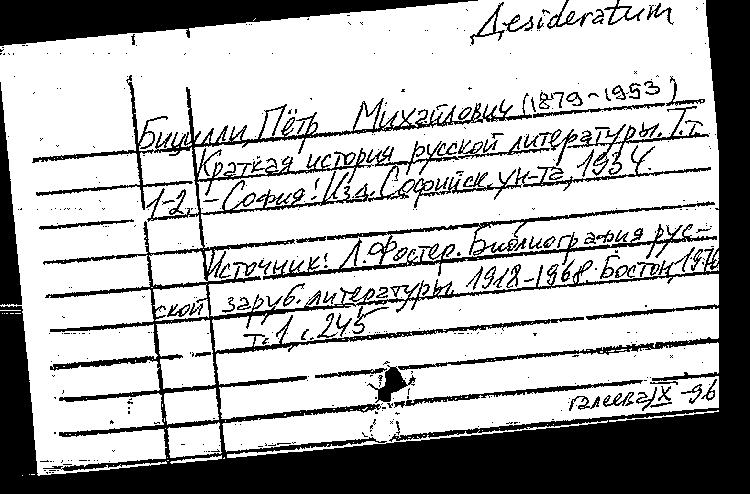 Desideratum
Бицилли, Пётр Михайлович (1879-1953)
Краткая история русской литературы. Т.т.
1-2. - София: Изд. Софийск. ун-та, 1934.
Источник: Л. Фостер. Библиография рус-
ской заруб. литературы 1918-1968. Бостон, 1970
Т. 1, с. 245
галеева IX -96